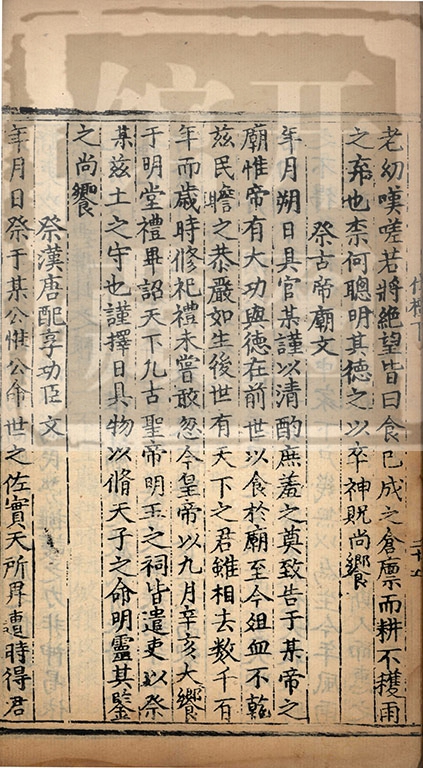 老幼嘆嗟若將絕望皆曰食已成之倉廪而耕不穫雨
之弃也柰何聰明其德之以卒神貺尚饗
祭古帝廟文
年月朔日具官某謹以清酌庶羞之奠致告于某帝之
廟惟帝有大功與德在前世以食於廟至今俎血不乾
兹民瞻之恭嚴如生後世有天下之君雖相去数千百
年而歲時修祀禮未嘗敢忽今皇帝以九月辛亥大饗
于明堂禮畢詔天下凡古聖帝明王之祠皆遣吏以祭
某兹土之守也謹擇日具物以脩天子之命明靈其鑒
之尚饗
祭漢唐配享功臣文
年月日祭于某公惟公命世之佐實天所畀遭時得君